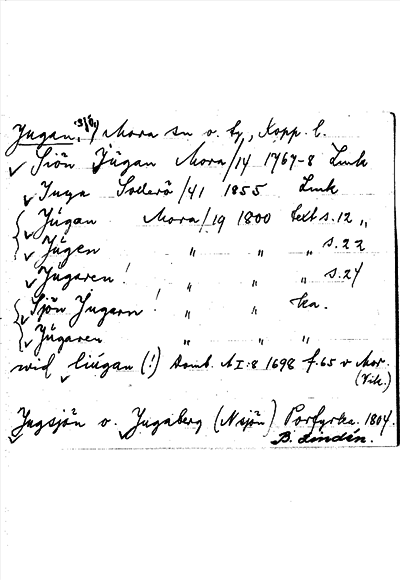 Jugan, 3/8, Mora sn o. tg, Kopp. l.
Siön Jùgan Mora/14 1767-8 Lmk
Juga Sollerö/41 1855 Lmk
Jùgan Mora/19 1800 text s.12 „
Jùgen „ „ „ s.22
Jùgaren! „ „ „ s.24
Sjön Jugarn! „ „ ka.
Jùgaren „ „ „
wid liùgan (!) Domb. A I:8 1698 f.65 v Mor.
(Vik.)
Jugsjön o. Jugaberg (N sjön) Porfyrka. 1804.
B. Lindén.